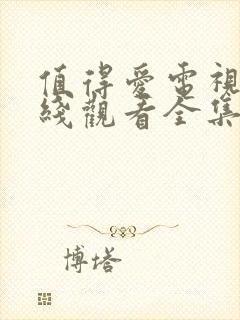 值得愛電視
綫觀看全集
博塔